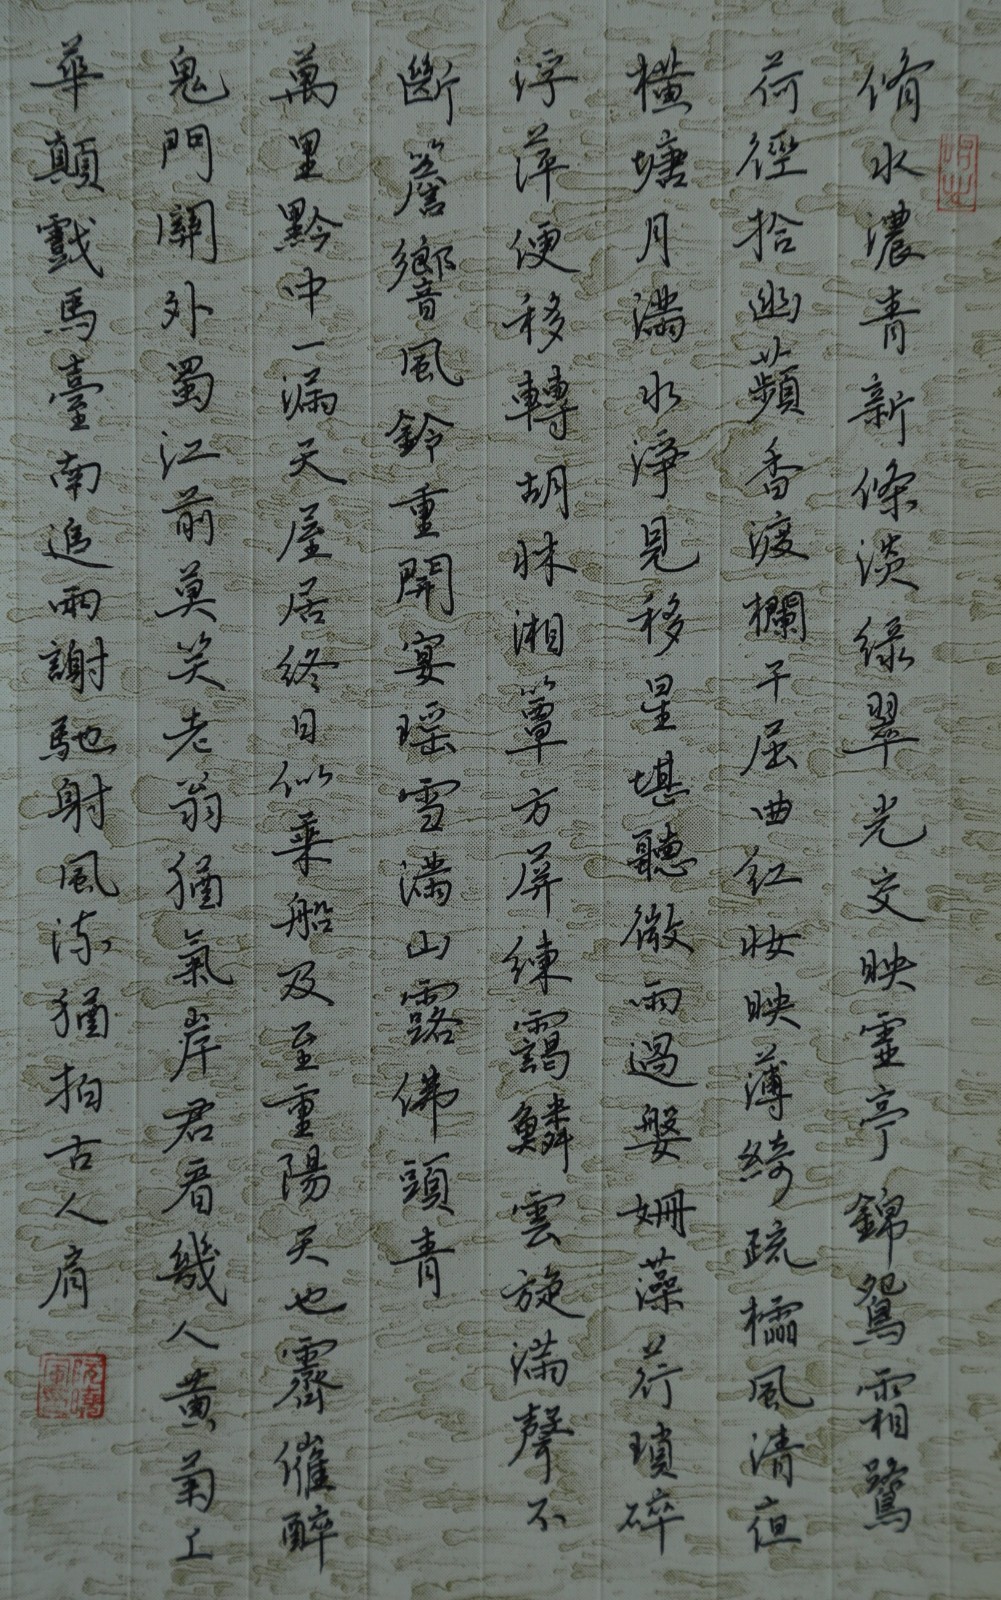 脩水濃青新條淡綠翠光交映虛亭錦鴛霜鷺
荷徑拾幽蘋香渡欄干屈曲紅妝映薄綺疏櫺風清夜
橫塘月滿水淨見移星堪聽微雨過媻姍藻荇瑣碎
浮萍便移轉胡牀湘簟方屏練靄鱗雲旋滿聲不
斷簷響風鈴重開宴瑤雪滿山露佛頭青
萬里黔中一漏天屋居終日似乘船及至重陽天也霽催醉
鬼門關外蜀江前莫笑老翁猶氣岸君看幾人黃菊上
華顛戲馬臺南追兩謝馳射風流猶拍古人肩